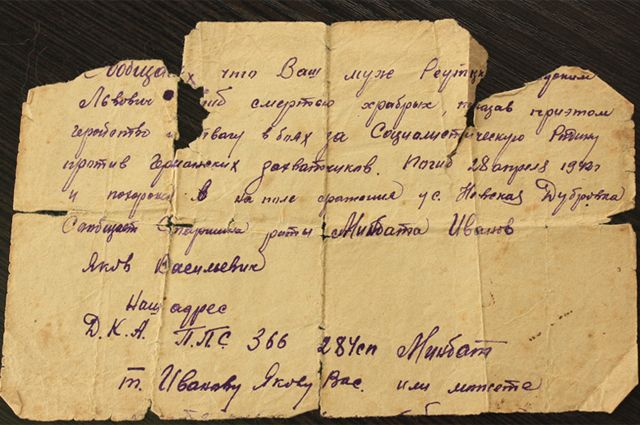 Сообща что Ваш муж
Львович иб смертью храбрых, приэтом
геройство и вагу в боях за Социалистическую Родину
против Германских захватчиков. Погиб 28 апреля
и похоро в на поле сражения у с. Невская Дубровка
Сообщает Старшина роты Минбата Иванов
Яков Васильевич
Наш адрес
Д.К.А. П.П.С. 366 284сп Минбат
т. Иванову Якову Вас. или можете